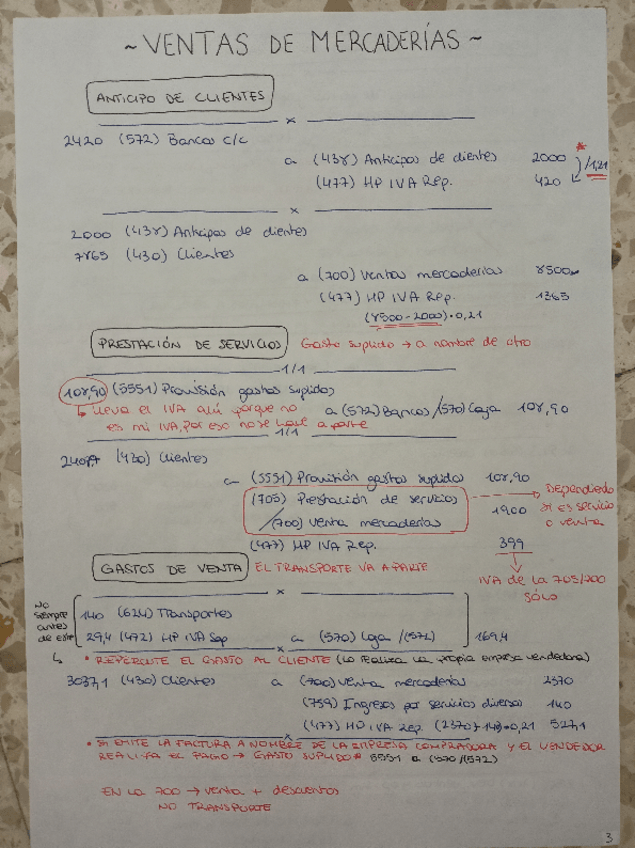 ~ VENTAS DE MERCADERÍAS ~
ANTICIPO DE CLIENTES
x
2420 (572) Bancos c/c
a (438) Anticipos de clientes 2000 * /1,21
(477) HP IVA Rep. 420
x
2000 (438) Anticipos de clientes
7865 (430) Clientes
a (700) Ventas mercaderías 8500
(477) HP IVA Rep. 1365
(8500-2000)·0,21
PRESTACIÓN DE SERVICIOS Gasto suplido → a nombre de otro
1/1
108,90 (5551) Provisión gastos suplidos
↳ lleva el IVA aquí porque no a (572) Bancos/(570) Caja 108,90
es mi IVA, por eso no se hace aparte
1/1
2407,9 (430) Clientes
a (5551) Provisión gastos suplido 108,90
(705) Prestación de servicios 1900 → Dependiendo
/(700) Venta mercaderías si es servicio
o venta
(477) HP IVA Rep. 399
IVA de la 705/700
SÓLO
GASTOS DE VENTA EL TRANSPORTE VA APARTE
x
No siempre antes de este
140 (624) Transportes
29,4 (472) HP IVA Sop a (570) Caja /(572) 169,4
x
↳ * REPERCUTE EL GASTO AL CLIENTE (lo realiza la propia empresa vendedora)
3037,1 (430) Clientes a (700) Venta mercaderías 2370
(759) Ingresos por servicios diversos 140
(477) HP IVA Rep. (2370+140)·0,21 527,1
x
* SI EMITE LA FACTURA A NOMBRE DE LA EMPRESA COMPRADORA Y EL VENDEDOR
REALIZA EL PAGO → GASTO SUPLIDOR 5551 a (570/(572)
EN LA 700 → venta + descuentos
NO TRANSPORTE
3